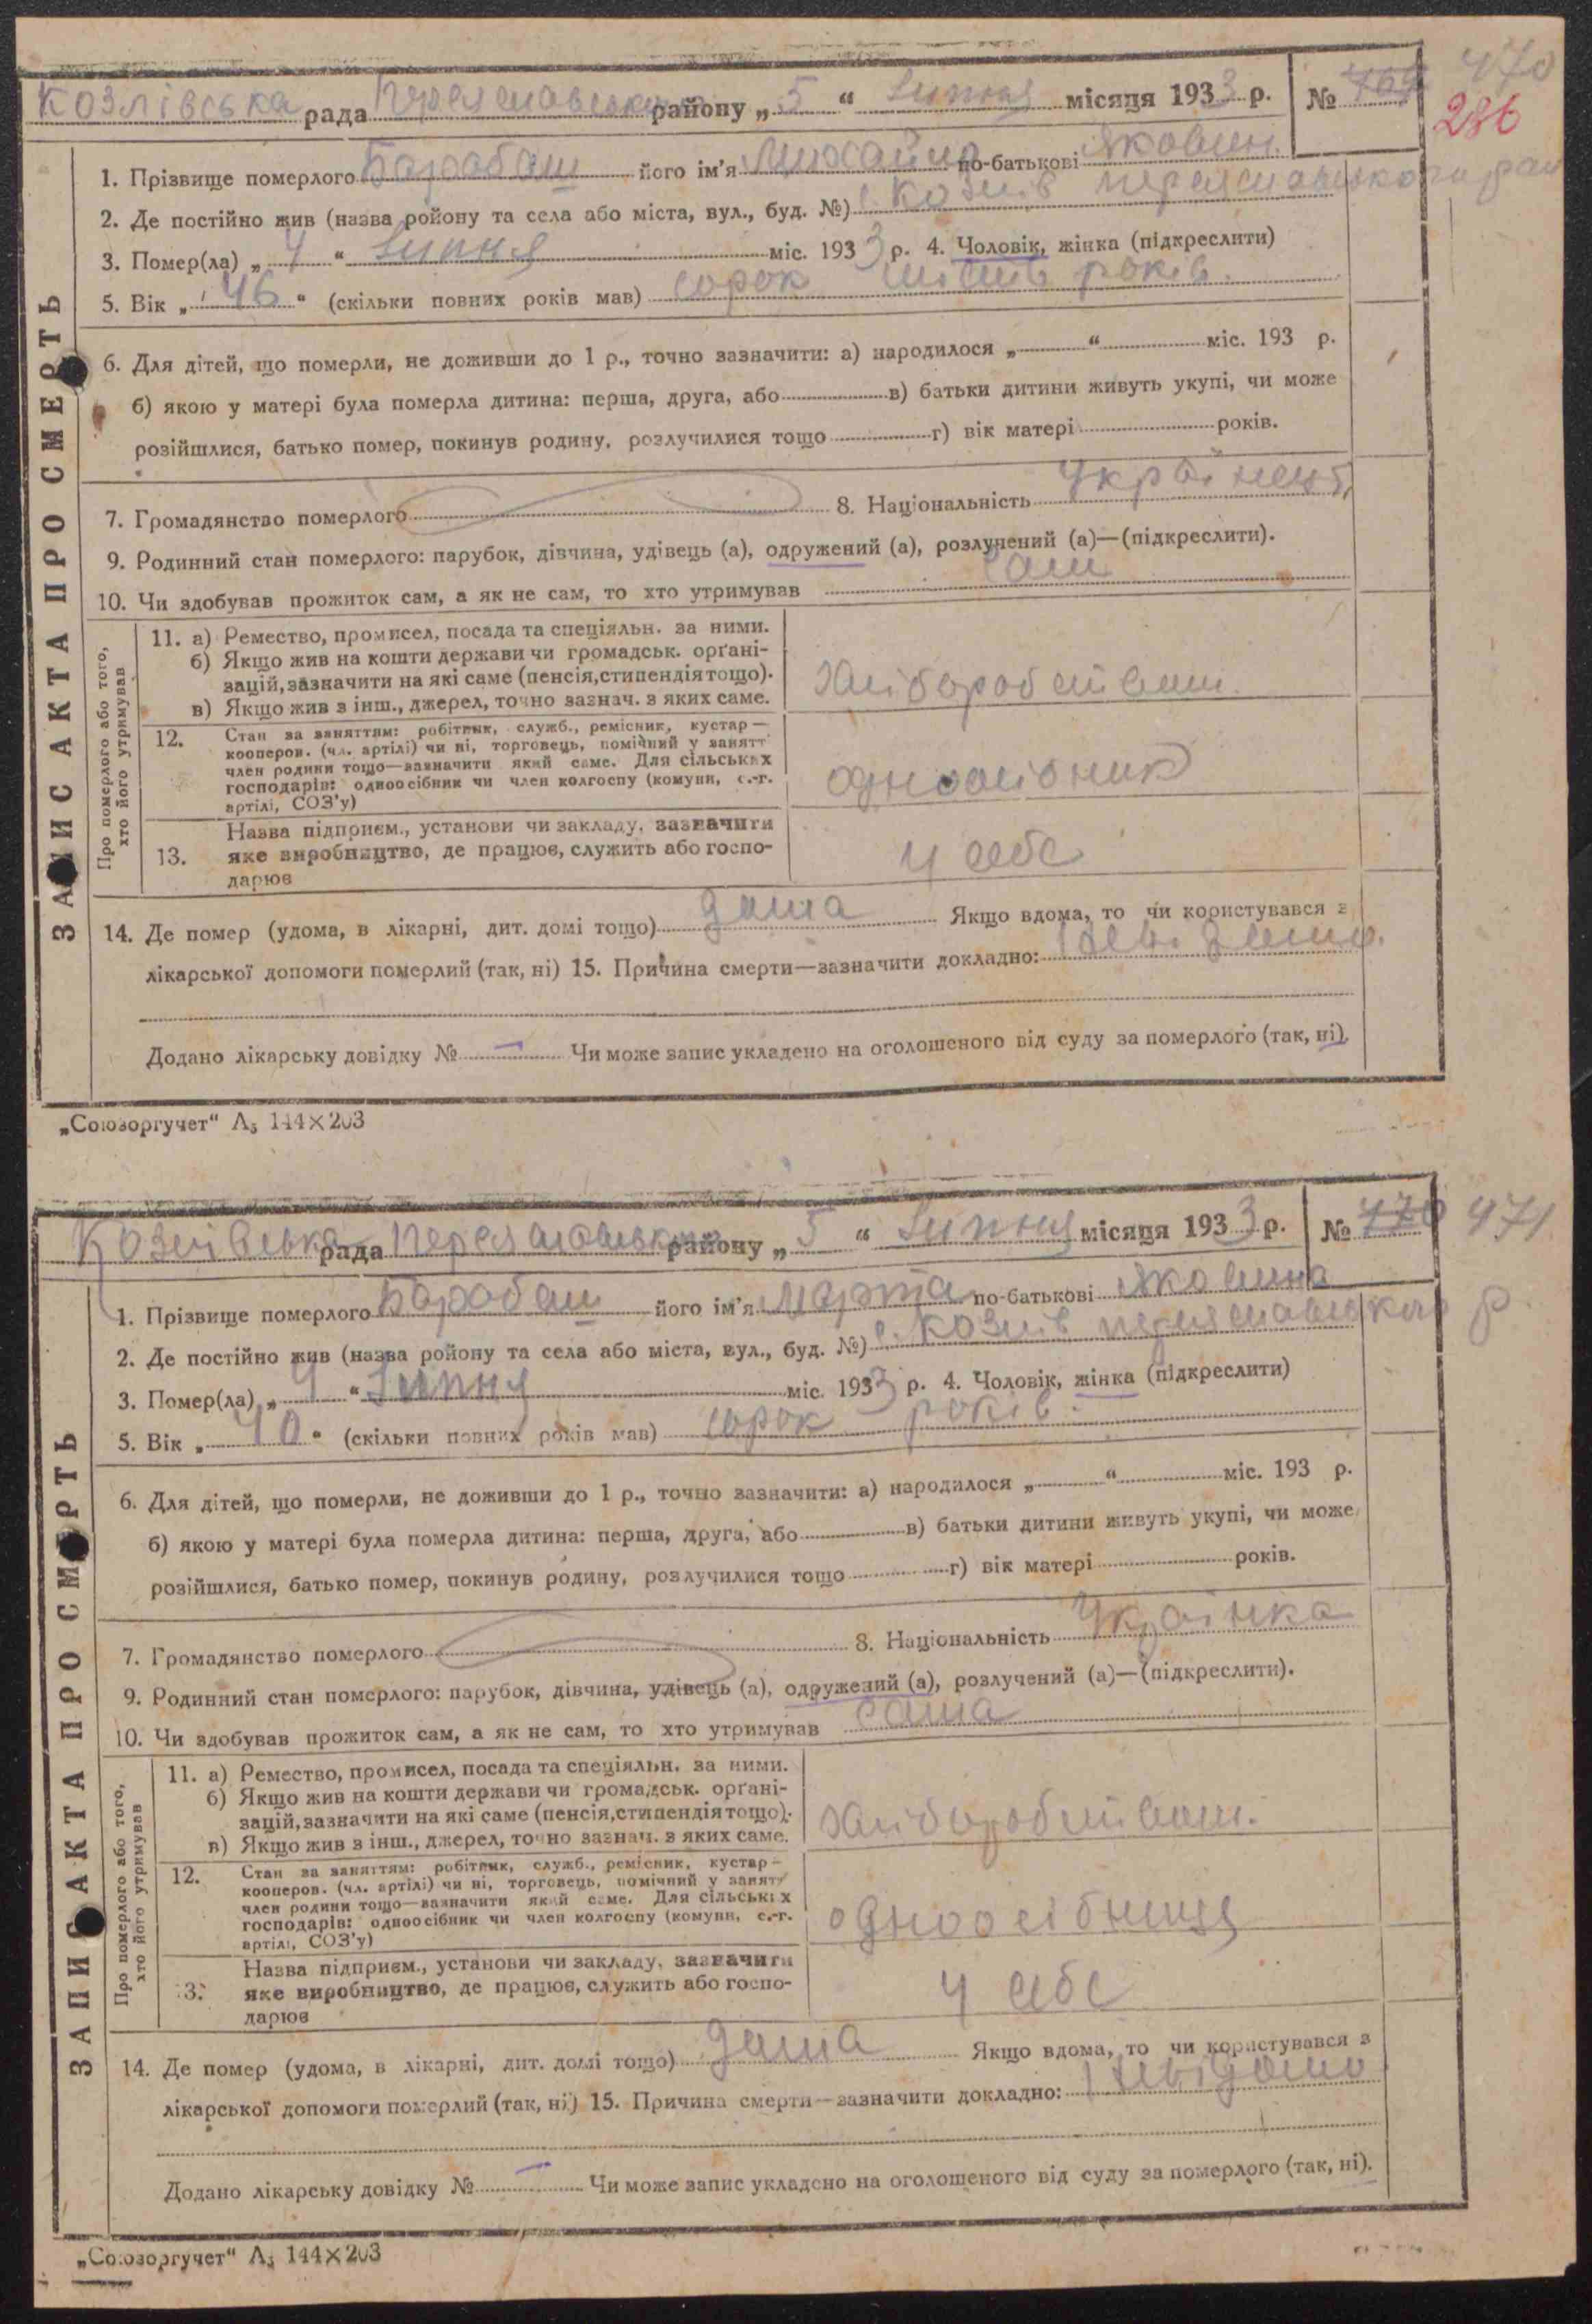 Козлівська рада Переяславського району „ 5 “ Липня місяця 1933 р. № 769 470
286
ЗАПИС АКТА ПРО СМЕРТЬ
1. Прізвище померлого Барабаш його ім'я Михайло по-батькові Яковин.
2. Де постійно жив (назва ройону та села або міста, вул., буд. №) с. Козлів Переяславського рай
3. Помер(ла) „ 4 “ Липня міс. 1933 р. 4. Чоловік, жінка (підкреслити)
5. Вік „ 46 “ (скільки повних років мав) сорок шість років.
6. Для дітей, що померли, не доживши до 1 р., точно зазначити: а) народилося „ “ міс. 193 р.
б) якою у матері була померла дитина: перша, друга, або в) батьки дитини живуть укупі, чи може
розійшлися, батько помер, покинув родину, розлучилися тощо г) вік матері років.
7. Громадянство померлого 8. Національність Українець
9. Родинний стан померлого: парубок, дівчина, удівець (а), одружений (а), розлучений (а)—(підкреслити).
10. Чи здобував прожиток сам, а як не сам, то хто утримував сам
Про померлого або того,
хто його утримував
11. а) Ремество, промисел, посада та спеціяльн. за ними.
б) Якщо жив на кошти держави чи громадськ. орґані-
зацій, зазначити на які саме (пенсія, стипендія тощо).
в) Якщо жив з інш., джерел, точно зазнач. з яких саме.
Хліборобством.
12. Стан за заняттям: робітник, служб., ремісник, кустар—
кооперов. (чл. артілі) чи ні, торговець, помічний у занятт
член родини тощо—зазначити який саме. Для сільських
господарів: одноосібник чи член колгоспу (комуни, с.-г.
артілі, СОЗ'у)
одноосібник
13. Назва підприєм., установи чи закладу, зазначити
яке виробництво, де працює, служить або госпо-
дарює
у себе
14. Де помер (удома, в лікарні, дит. домі тощо) дома Якщо вдома, то чи користувався з
лікарської допомоги померлий (так, ні) 15. Причина смерти—зазначити докладно:
Додано лікарську довідку № — Чи може запис укладено на оголошеного від суду за померлого (так, ні).
„Союзоргучет“ А₅ 144×203
Козлівська рада Переяславського району „ 5 “ Липня місяця 1933 р. № 770 471
ЗАПИС АКТА ПРО СМЕРТЬ
1. Прізвище померлого Барабаш його ім'я Марта по-батькові Яковина
2. Де постійно жив (назва ройону та села або міста, вул., буд. №) с. Козлів Переяславського р
3. Помер(ла) „ 4 “ Липня міс. 1933 р. 4. Чоловік, жінка (підкреслити)
5. Вік „ 40 “ (скільки повних років мав) сорок років.
6. Для дітей, що померли, не доживши до 1 р., точно зазначити: а) народилося „ “ міс. 193 р.
б) якою у матері була померла дитина: перша, друга, або в) батьки дитини живуть укупі, чи може
розійшлися, батько помер, покинув родину, розлучилися тощо г) вік матері років.
7. Громадянство померлого 8. Національність Українка
9. Родинний стан померлого: парубок, дівчина, удівець (а), одружений (а), розлучений (а)—(підкреслити).
10. Чи здобував прожиток сам, а як не сам, то хто утримував сама
Про померлого або того,
хто його утримував
11. а) Ремество, промисел, посада та спеціяльн. за ними.
б) Якщо жив на кошти держави чи громадськ. орґані-
зацій, зазначити на які саме (пенсія, стипендія тощо).
в) Якщо жив з інш., джерел, точно зазнач. з яких саме.
Хліборобством.
12. Стан за заняттям: робітник, служб., ремісник, кустар—
кооперов. (чл. артілі) чи ні, торговець, помічний у занятт
член родини тощо—зазначити який саме. Для сільських
господарів: одноосібник чи член колгоспу (комуни, с.-г.
артілі, СОЗ'у)
одноосібниця
13. Назва підприєм., установи чи закладу, зазначити
яке виробництво, де працює, служить або госпо-
дарює
у себе
14. Де помер (удома, в лікарні, дит. домі тощо) дома Якщо вдома, то чи користувався з
лікарської допомоги померлий (так, ні) 15. Причина смерти—зазначити докладно: невідомо
Додано лікарську довідку № — Чи може запис укладено на оголошеного від суду за померлого (так, ні).
„Союзоргучет“ А₅ 144×203